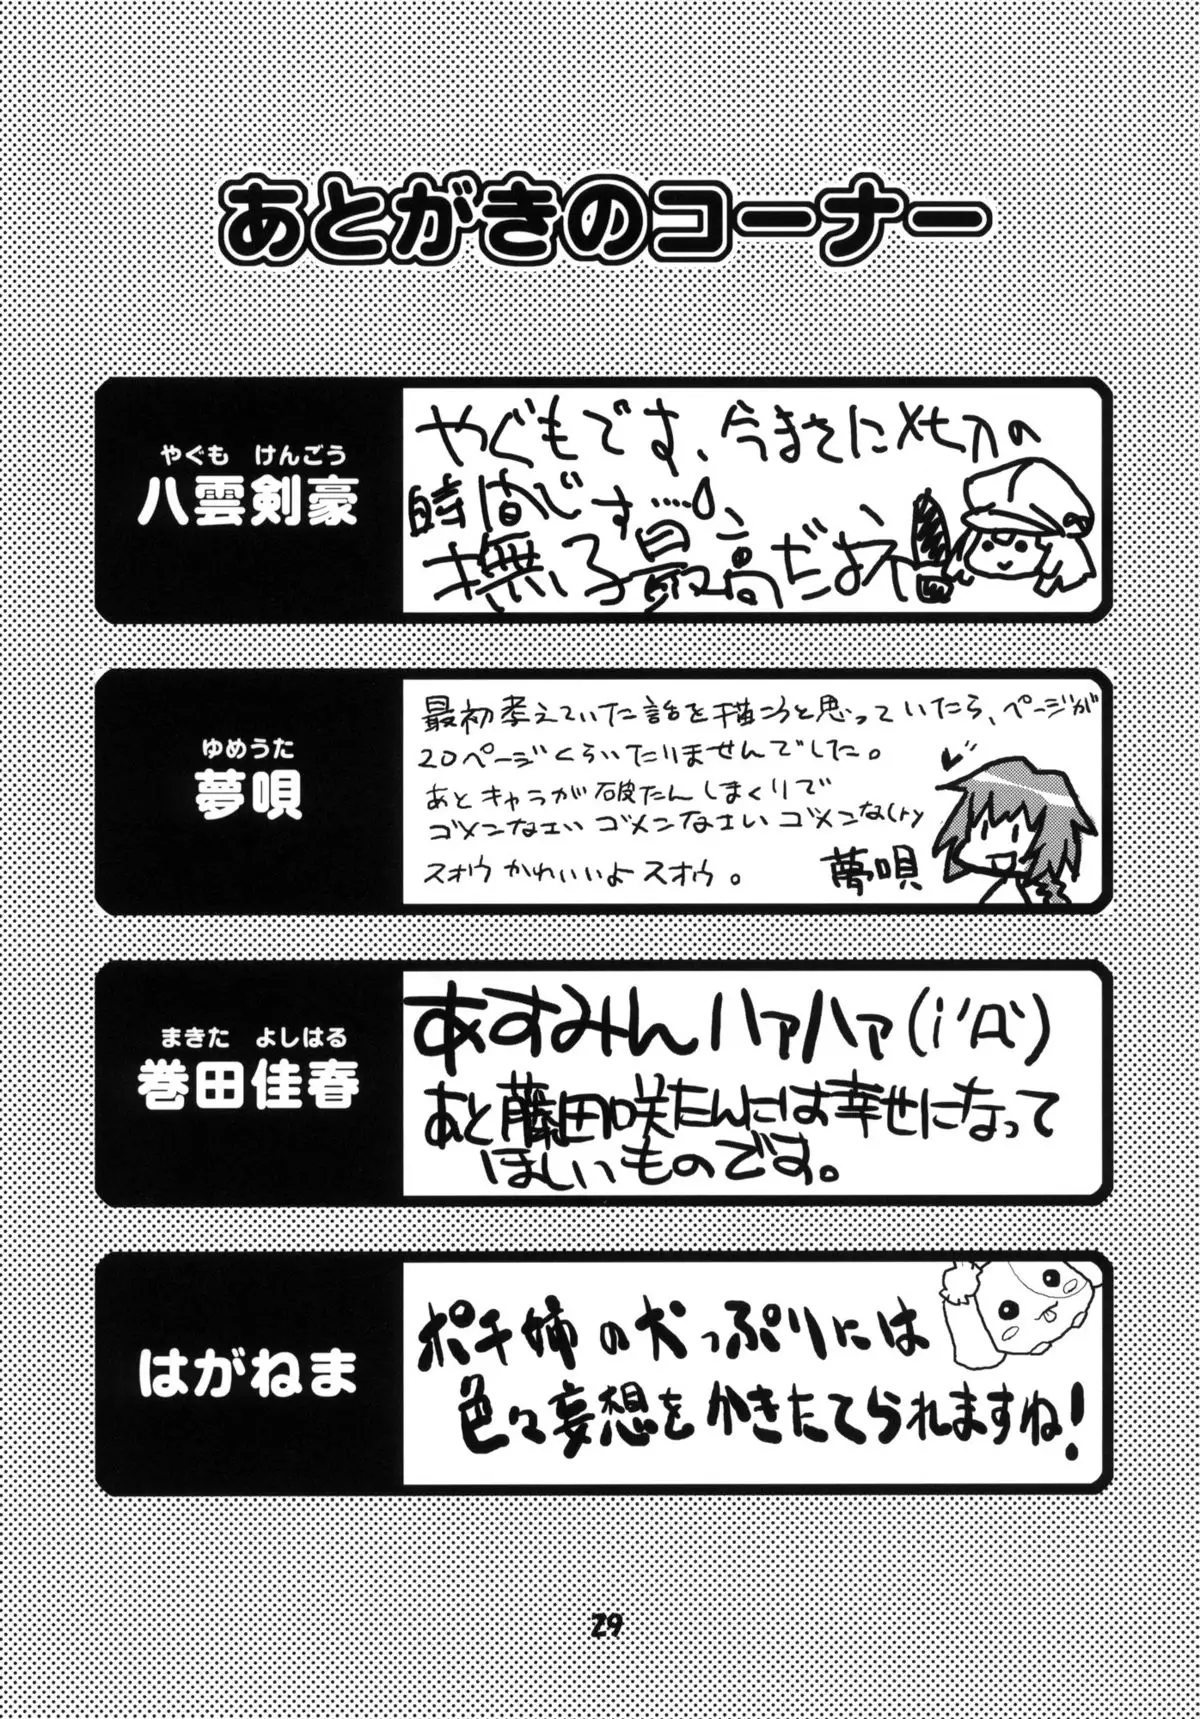 あとがきのコーナー
やぐも けんごう
八雲剣豪
やぐもです、今まさにメ切の
時間です……
撫子最高だおネ
ゆめうた
夢唄
最初考えていた話を描こうと思っていたら、ページが
20ページくらいたりませんでした。
あとキャラが破たんしまくりで
ゴメンなさい ゴメンなさい ゴメンな(ry
スオウかわいいよスオウ。
夢唄
まきた よしはる
巻田佳春
あすみんハァハァ(i'Д`)
あと藤田咲たんには幸せになって
ほしいものです。
はがねま
ポチ姉の犬っぷりには
色々妄想をかきたてられますね!
29